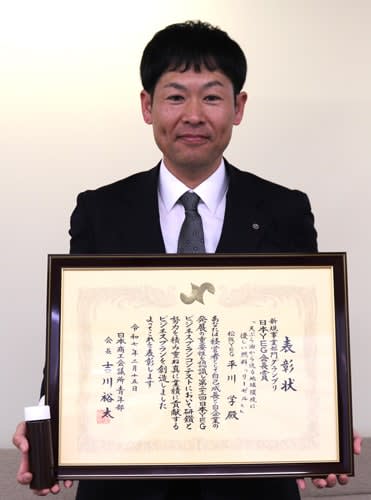 表彰状
新規事業部門グランプリ
日本YEG会長賞
「天ぷら油から造る地球環境に
優しい燃料『リーゼル』」
松阪YEG
平川 学 殿
あなたは経営者として自己成長と自企業の
発展の重要性を認識し第二十二回日本YEG
ビジネスプランコンテストにおいて研鑽と
努力を積み重ね真に業績に貢献する
ビジネスプランを創造しました
よってこれを表彰します
令和七年二月十五日
日本商工会議所青年部
会長 士川 裕太